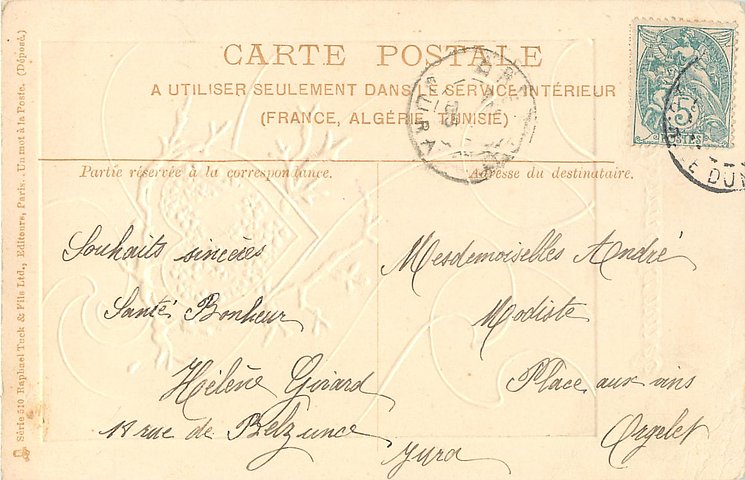 CARTE POSTALE
A UTILISER SEULEMENT DANS LE SERVICE INTÉRIEUR
(FRANCE, ALGÉRIE, TUNISIE)
Partie réservée à la correspondance.
Adresse du destinataire.
Souhaits sincères
Santé Bonheur
Hélène Girard
18 rue de Belzunce
Mesdemoiselles André
Modiste
Place aux vins
Orgelet
Jura
Série 510 Raphael Tuck & Fils Ltd., Editeurs, Paris. Un mot à la Poste. (Déposé.)
5c
POSTES
JURA